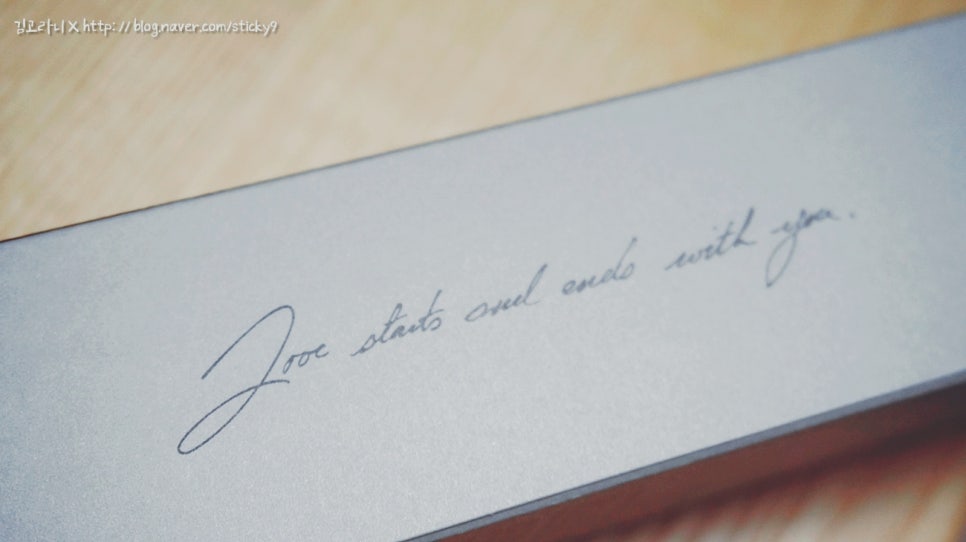 김고라니 X http://blog.naver.com/sticky9
Love starts and ends with you.